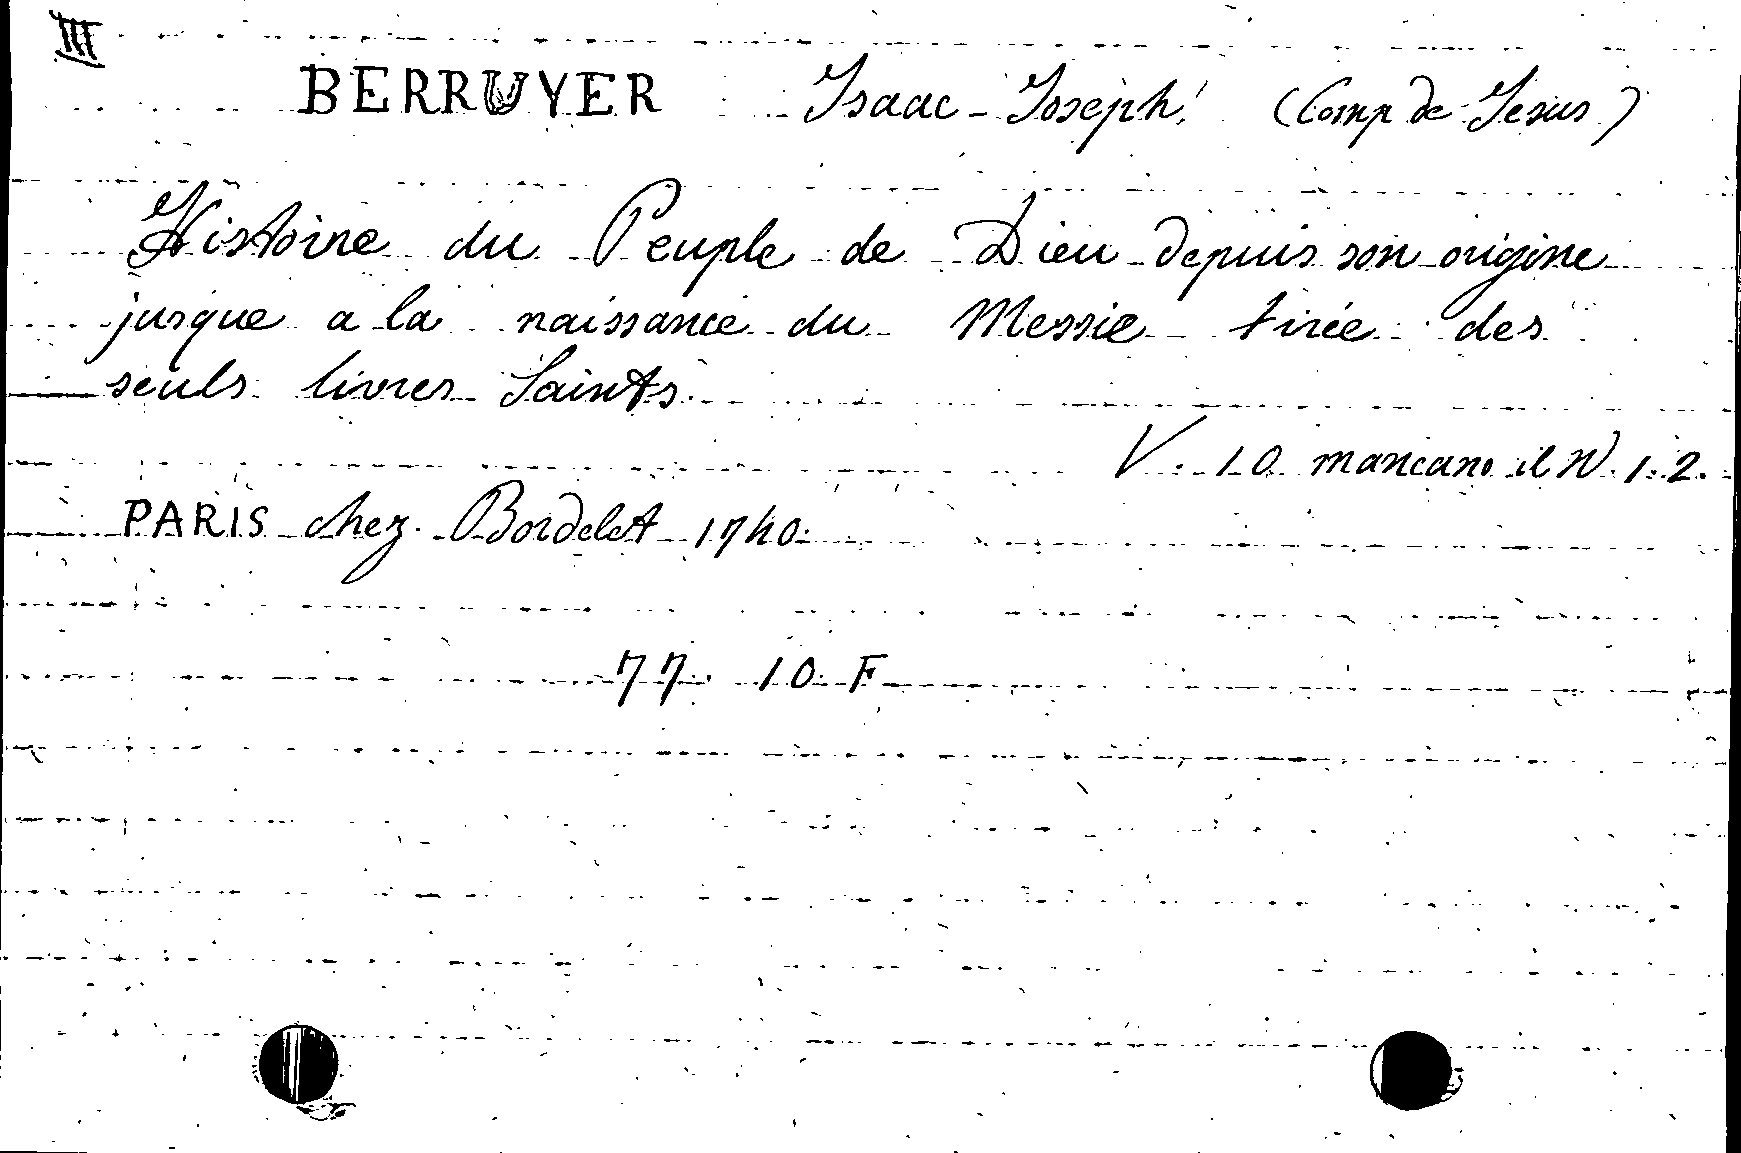 III
BERRUYER Isaac-Joseph (Comp de Jesus)
Histoire du Peuple de Dieu depuis son origine
jusque a la naissance du Messie tirée des
seuls livres Saints.
V. 10 mancano il N. 1.2.
PARIS chez Bordelet 1740
77. 10. F